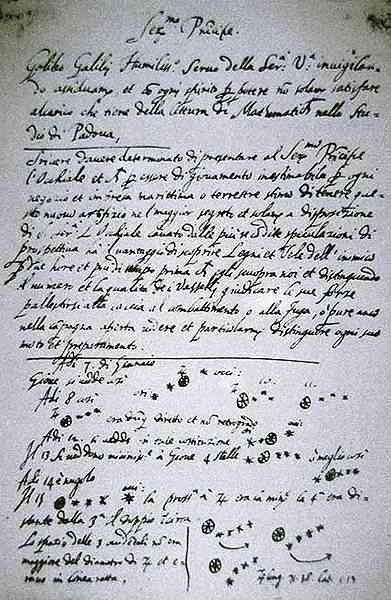 Ser.mo Principe.
Galileo Galilei Humiliss.o Servo della Ser.a V.a invigilan-
do assiduamte, et co ogni spirito p potere no solam satisfare
al carico che tiene della lettura di Mathematiche nello Stu-
dio di Padova,
Scrivere davere determinato di presentare al Ser.mo Principe
l'Occhiale et p essere di giovamento inestimabile p ogni
negozio et impresa marittima o terrestre stimo di tenere que-
sto nuovo artifizio nel maggior segreto et solam a disposizione
di S. Ser.a L'Occhiale cavato dalle più recondite speculazioni di
prospettiva ha il vantaggio di scoprire Legni et Vele dell'inimico
p due hore et più di tempo prima ch egli scuopra noi et distinguendo
il numero et la qualità de i Vasselli giudicare le sue forze
pallestirsi alla caccia al combattimento o alla fuga, o pure anco
nella campagna aperta vedere et particolarmte distinguere ogni suo
moto et preparamento.
Adi 7. di Gennaio
Giove si vedde così
Adi 8 così
era diretto et no retrogrado
Adi 12. si vedde in tale costituzione
Il 13 si veddono vicinissime a Giove 4 stelle meglio così
Adi 14 è nugolo
Il 15 la pross.a a era la min.e la 4.a era di-
stante dalla 3.a il doppio in circa
Lo spazio delle 3 occidentali no era
maggiore del diametro di et e-
rano in linea retta.